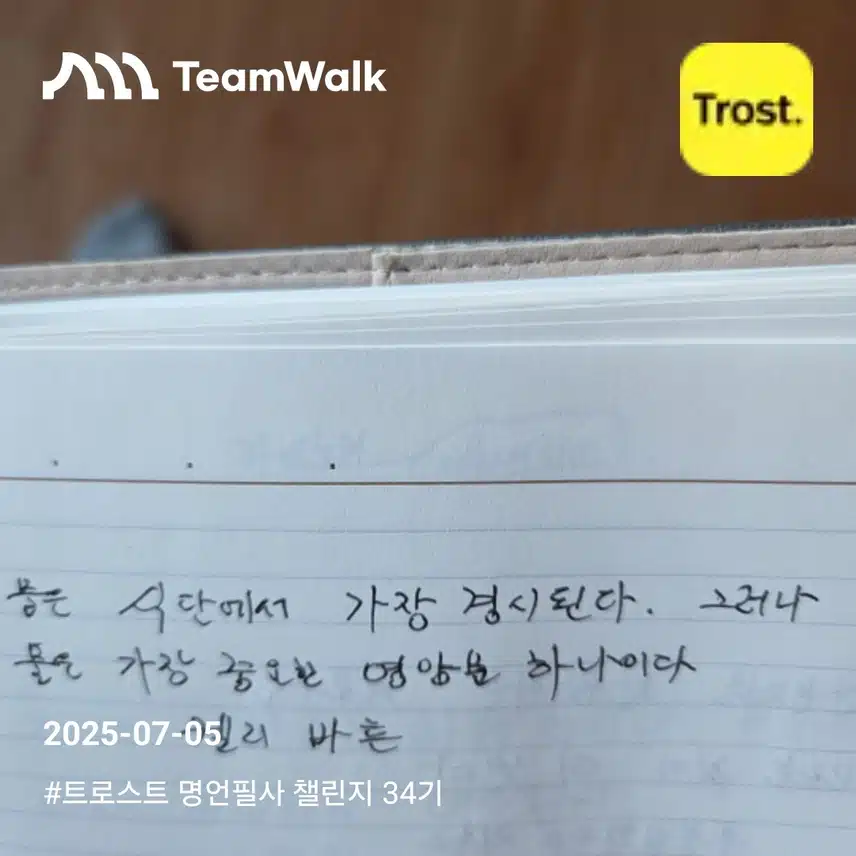 TeamWalk
Trost.
물은 식단에서 가장 경시된다. 그러나
물은 가장 중요한 영양분 하나이다
켈리 바흔
2025-07-05
#트로스트 명언필사 챌린지 34기